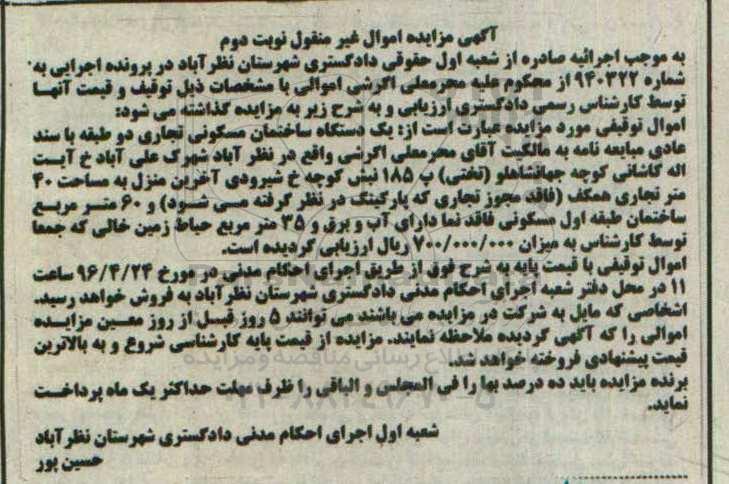 آگهی مزایده اموال غیر منقول نوبت دوم
به موجب اجرائیه صادره از شعبه اول حقوقی دادگستری شهرستان نظرآباد در پرونده اجرایی به
شماره ۹۴۰۳۲۲ از محکوم علیه محرمعلی اگرشی اموالی با مشخصات ذیل توقیف و قیمت آنهـا
توسط کارشناس رسمی دادگستری ارزیابی و به شرح زیر به مزایده گذاشته می شود:
اموال توقیفی مورد مزایده عبارت است از: یک دستگاه ساختمان مسکونی تجاری دو طبقه با سند
عادی مبایعه نامه به مالکیت آقای محرمعلی اگرشی واقع در نظر آباد شهرک علی آباد خ آیـت
اله کاشانی کوچه جهانشاهلو (تختی) پ ۱۸۵ نبش کوچه خ شیرودی آخرین منزل به مساحت ۴۰
متر تجاری همکف (فاقد مجوز تجاری که پارکینگ در نظر گرفته مـی شـود) و ۶۰ متـر مربـع
ساختمان طبقه اول مسکونی فاقد نما دارای آب و برق و ۳۵ متر مربع حیاط زمین خالی که جمعا
توسط کارشناس به میزان ۷۰۰/۰۰۰/۰۰۰ ریال ارزیابی گردیده است.
اموال توقیفی با قیمت پایه به شرح فوق از طریق اجرای احکام مدنی در مورخ ۹۶/۴/۲۴ ساعت
۱۱ در محل دفتر شعبه اجرای احکام مدنی دادگستری شهرستان نظرآباد به فروش خواهد رسید.
اشخاصی که مایل به شرکت در مزایده می باشند می توانند ۵ روز قبـل از روز معـین مزایـده
اموالی را که آگهی گردیده ملاحظه نمایند. مزایده از قیمت پایه کارشناسی شروع و به بالاترین
قیمت پیشنهادی فروخته خواهد شد.
برنده مزایده باید ده درصد بها را فی المجلس و الباقی را ظرف مهلت حداکثر یک ماه پرداخـت
نماید.
شعبه اول اجرای احکام مدنی دادگستری شهرستان نظرآباد
حسین پور